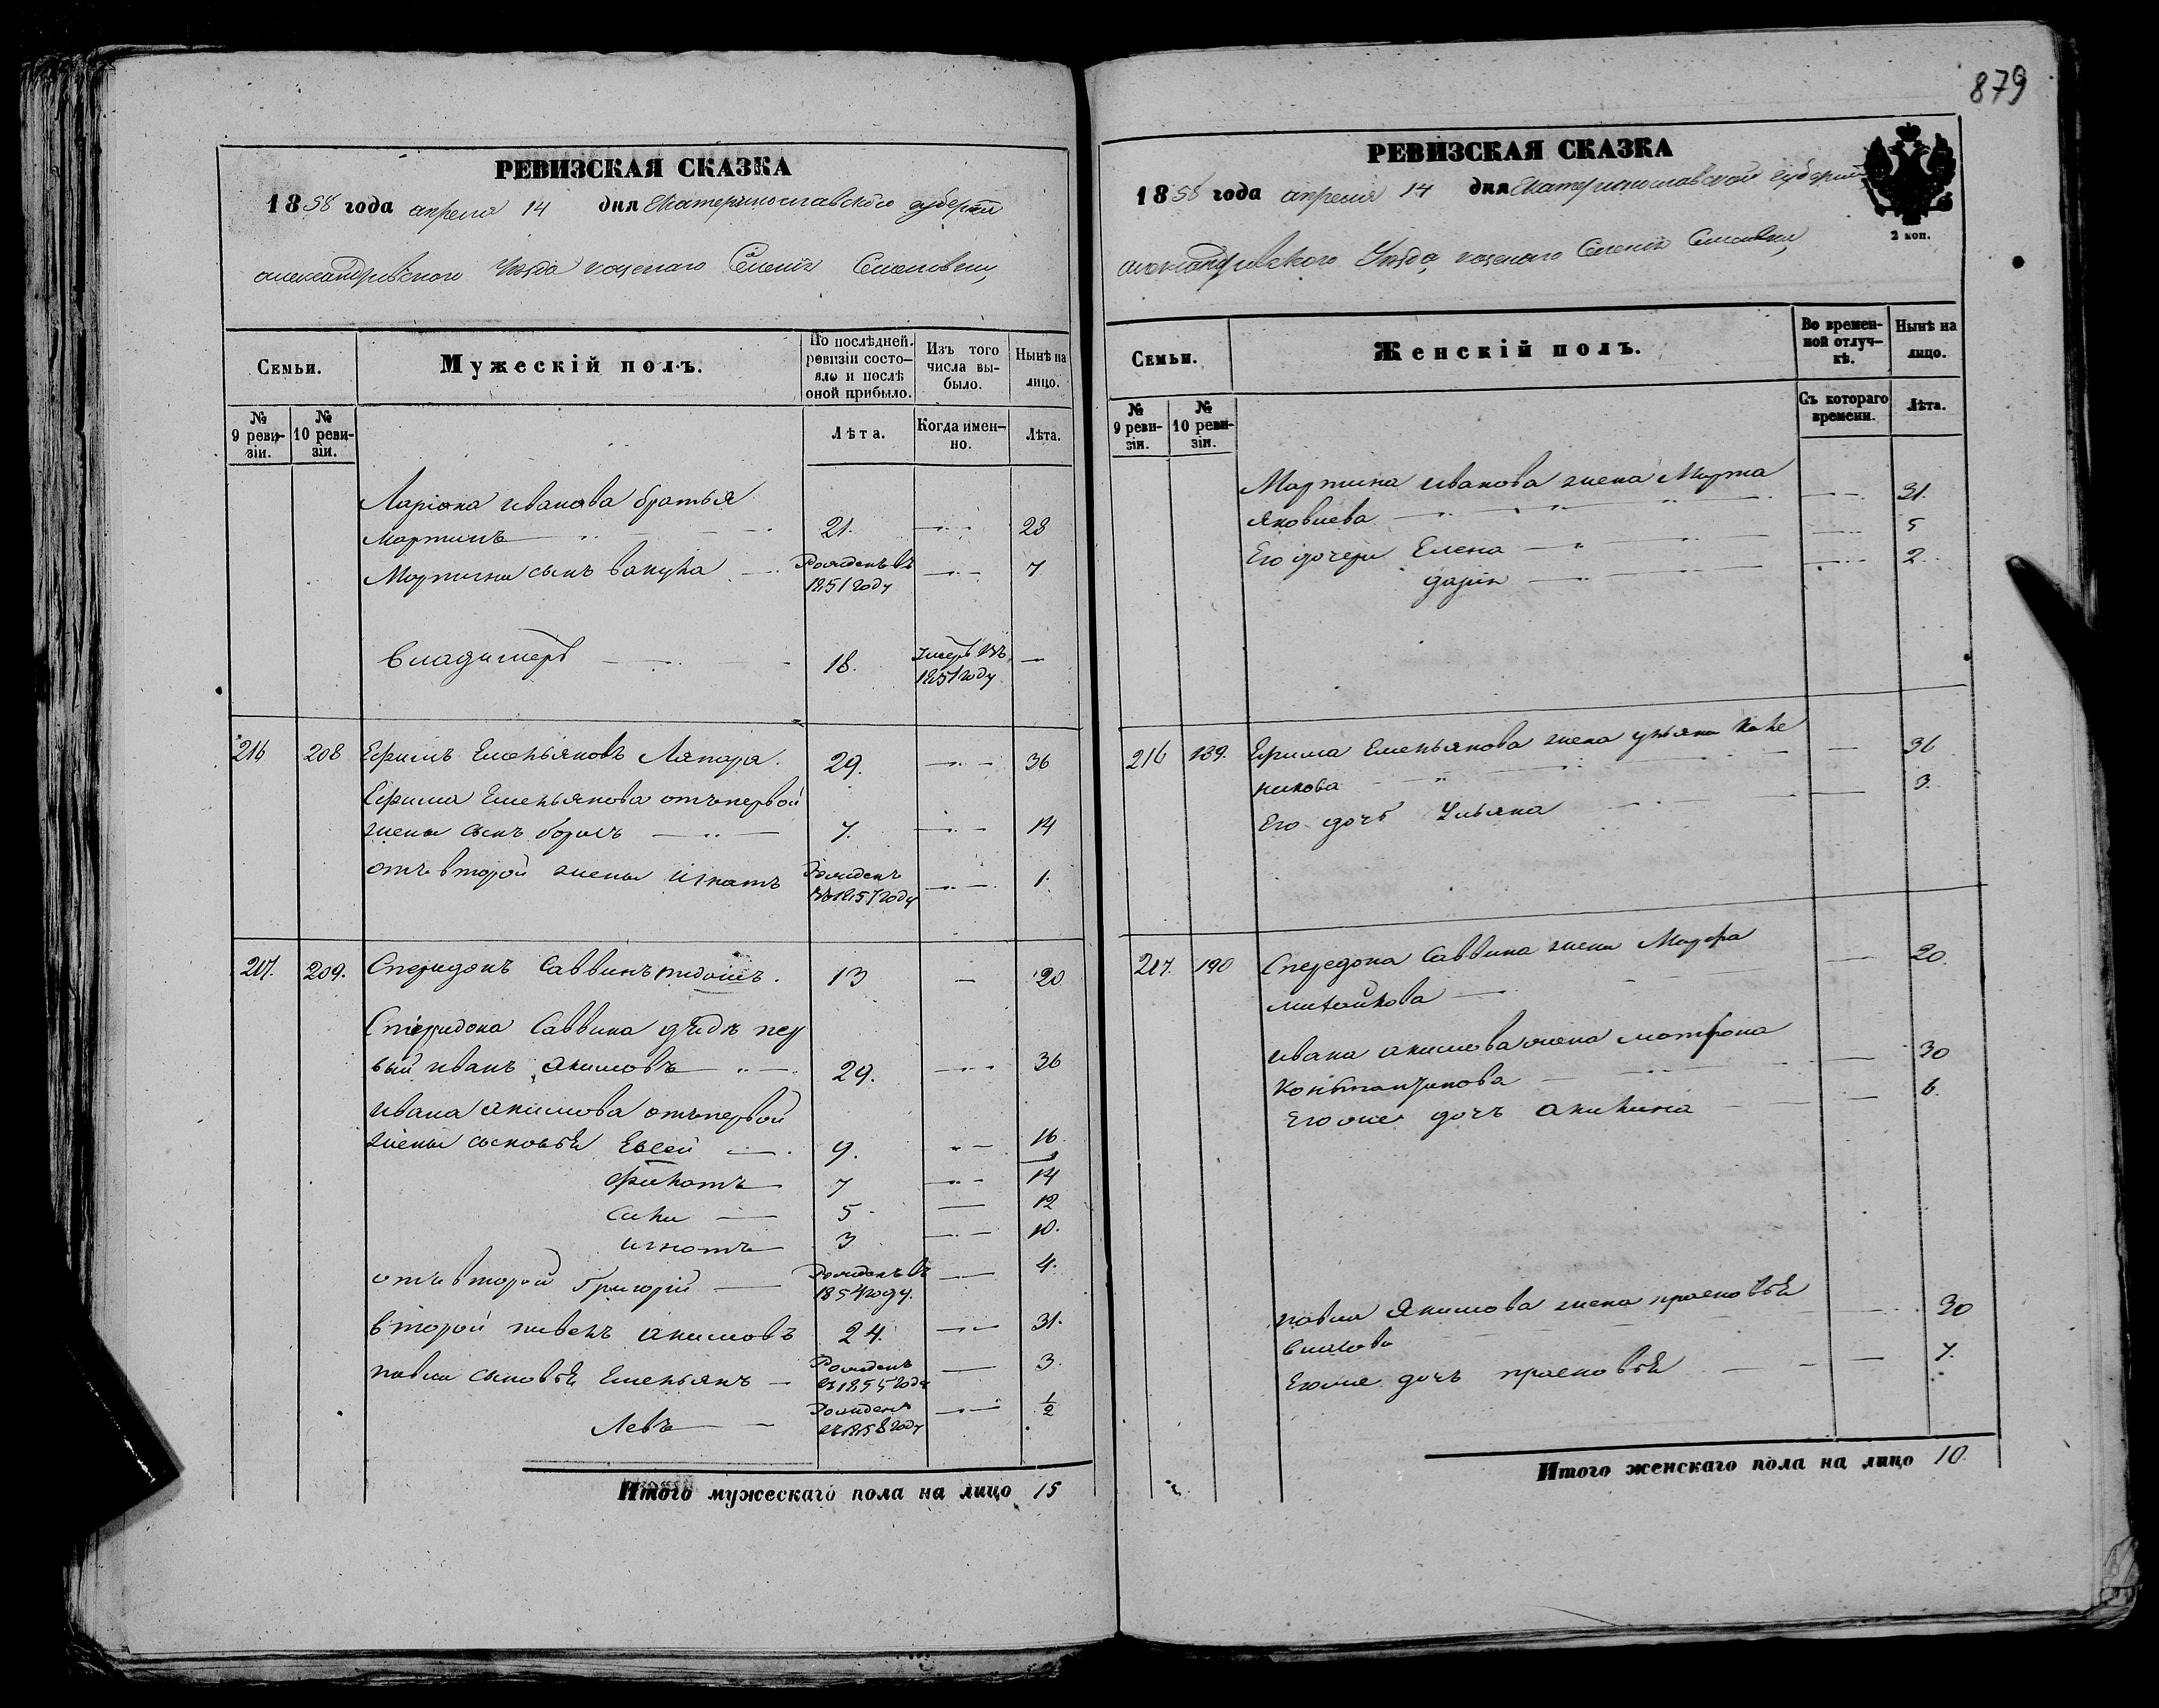 879
РЕВИЗСКАЯ СКАЗКА
1858 года апреля 14 дня Екатеринославской губернии
александровского Уезда казенаго Селенія Семеновки
Семьи.
Мужескій полъ.
По послѣдней ревизіи состо-
яло и послѣ
оной прибыло.
Изъ того
числа вы-
было.
Нынѣ на
лицо.
№
9 реви-
зіи.
№
10 реви-
зіи.
Лѣта.
Когда имен-
но.
Лѣта.
Ларіона иванова братья
Мартинъ 21. 28
Мартина сынъ вакула Рожденъ въ 1851 году 7
Владимеръ 18. Умеръ въ 1851 году —
216 208 Ефимъ Емельяновъ 29. 36
Ефима Емельянова отъ первой
жены сынъ борисъ 7. 14
отъ второй жены игнатъ Рожденъ въ 1857 году 1.
217. 209. Спиридонъ Саввинъ 13 — 20
Спиридона Саввина дядя пер
вый иванъ акимовъ 29. 36
ивана акимова отъ первой
жены сыновья Евсей 9. 16
Филатъ 7 14
Сила 5. 12
игнатъ 3 10.
отъ второй Григорій Рожденъ въ 1854 году. 4.
второй павелъ акимовъ 24. 31.
павла сыновья Емельянъ Рожденъ въ 1855 году 3.
Левъ Рожденъ въ 1858 году ½
Итого мужескаго пола на лицо 15
РЕВИЗСКАЯ СКАЗКА
1858 года апреля 14 дня Екатеринославской губерніи
александровского Уезда казенаго Селенія Семеновки
2 коп.
Семьи.
Женскій полъ.
Во времен-
ной отлуч-
кѣ.
Нынѣ на
лицо.
№
9 реви-
зіи.
№
10 реви-
зіи.
Съ котораго
времени.
Лѣта.
Мартина иванова жена Марта
Яковлева 31.
Его дочери Елена 5
дарія 2.
216 189. Ефима Емельянова жена ульяна
36
Его дочь Ульяна 3.
217. 190 Спередона Саввина жена Марфа
михайлова 20.
ивана акимова жена матрона
Константинова 30
Его же дочь акилина 6.
павла Якимова жена прасковья
власова 30
Его же дочь прасковья 7.
Итого женскаго пола на лицо 10.